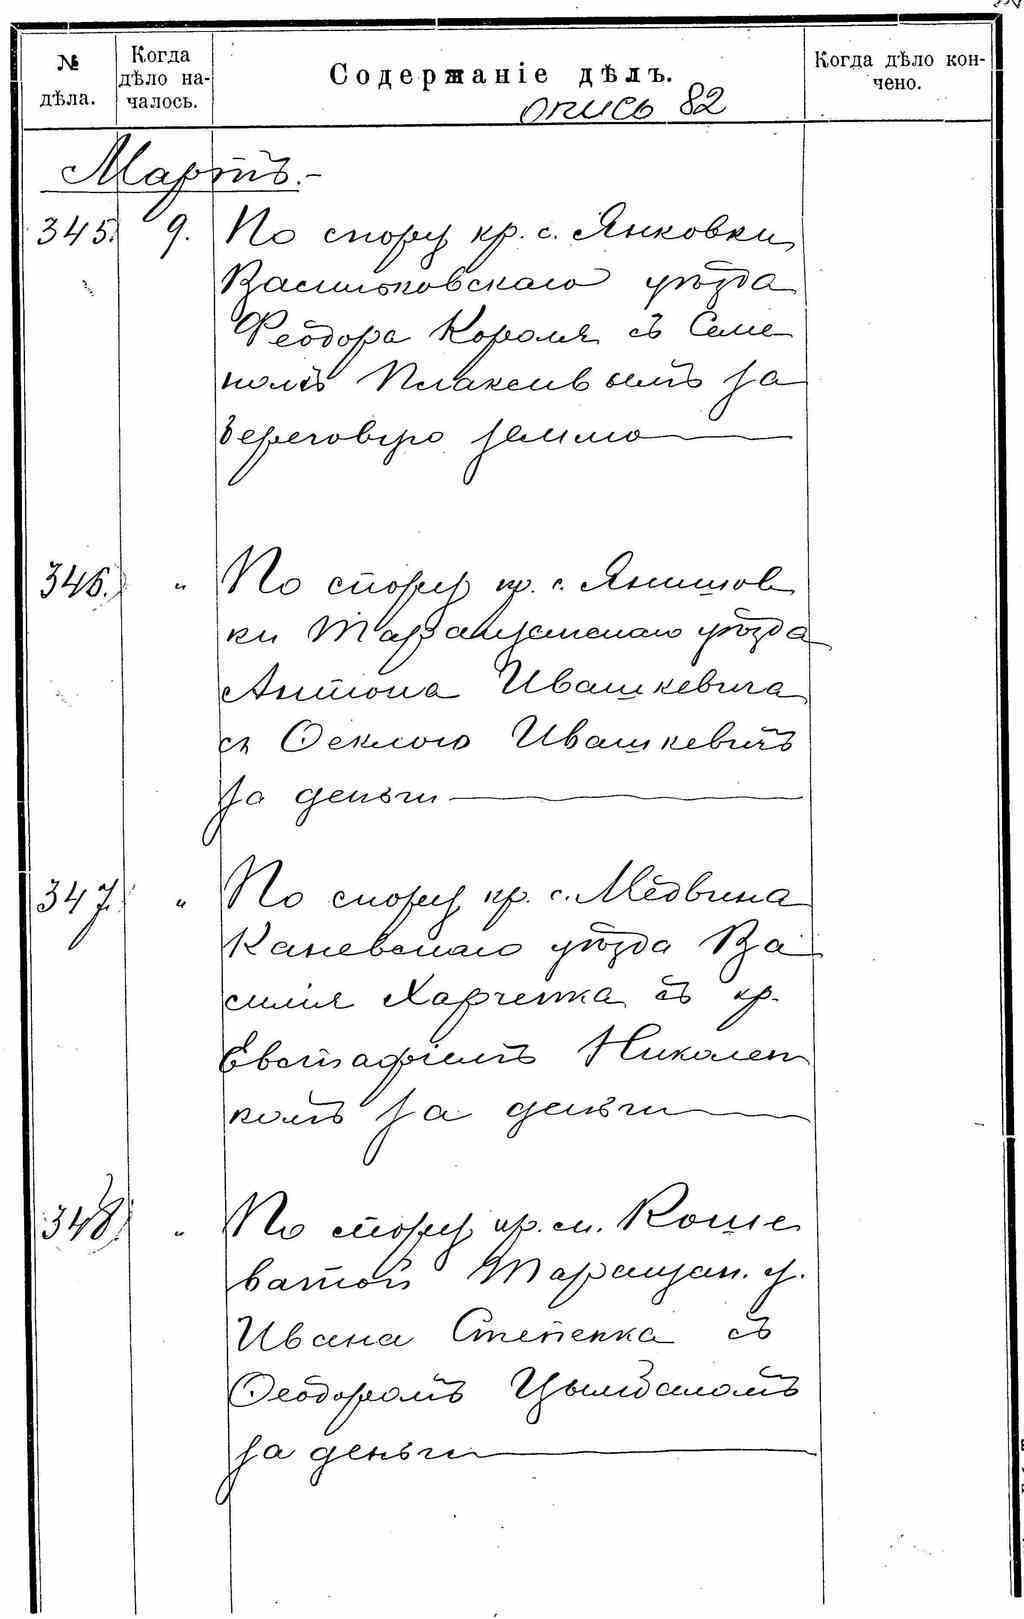 № дѣла.
Когда дѣло на-
чалось.
Содержаніе дѣлъ.
Когда дѣло кон-
чено.
опись 82
Мартъ.-
345. 9. По спору кр. с. Янковки
Васильковскаго уѣзда
Феодора Короля съ Семе
номъ Плаксивымъ за
береговую землю
346. " По спору кр. с. Янишов
ки Таращанскаго уѣзда
Антона Ивашкевича
съ Ѳеклою Ивашкевичъ
за деньги
347. " По спору кр. с. Медвина
Каневскаго уѣзда Ва
силія Харченка съ кр.
Евстафіемъ Николен
комъ за деньги
348. " По спору кр. м. Коше
ватой Таращан. у.
Ивана Степенка съ
Ѳеодоромъ Цымбаломъ
за деньги